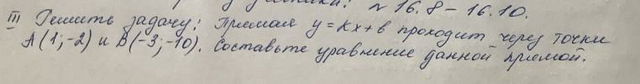 № 16.8 - 16.10.
III Решить задачу: Прямая y = kx + b проходит через точки
A (1; -2) и B (-3; -10). Составьте уравнение данной прямой.